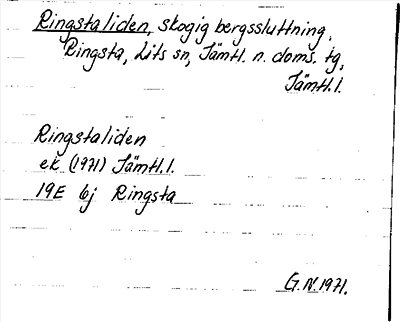 Ringstaliden, skogig bergssluttning,
Ringsta, Lits sn, Jämtl. n. doms. tg,
Jämtl.l.
Ringstaliden
ek (1971) Jämtl.l.
19E 6j Ringsta
G.N.1971.